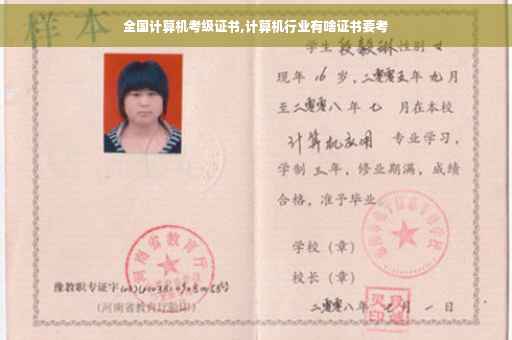 全国计算机考级证书,计算机行业有啥证书要考
样本
学生 段毅琳 性别 女
现年 16 岁,二零零五年 九 月
至二零零八年 七 月在本校
计算机应用 专业学习,
学制 三 年,修业期满,成绩
合格,准予毕业
学校(章)
校长(章)
二零零八年 七 月 一 日
河南省教育厅
豫教职专证字
(河南省教育厅验印)